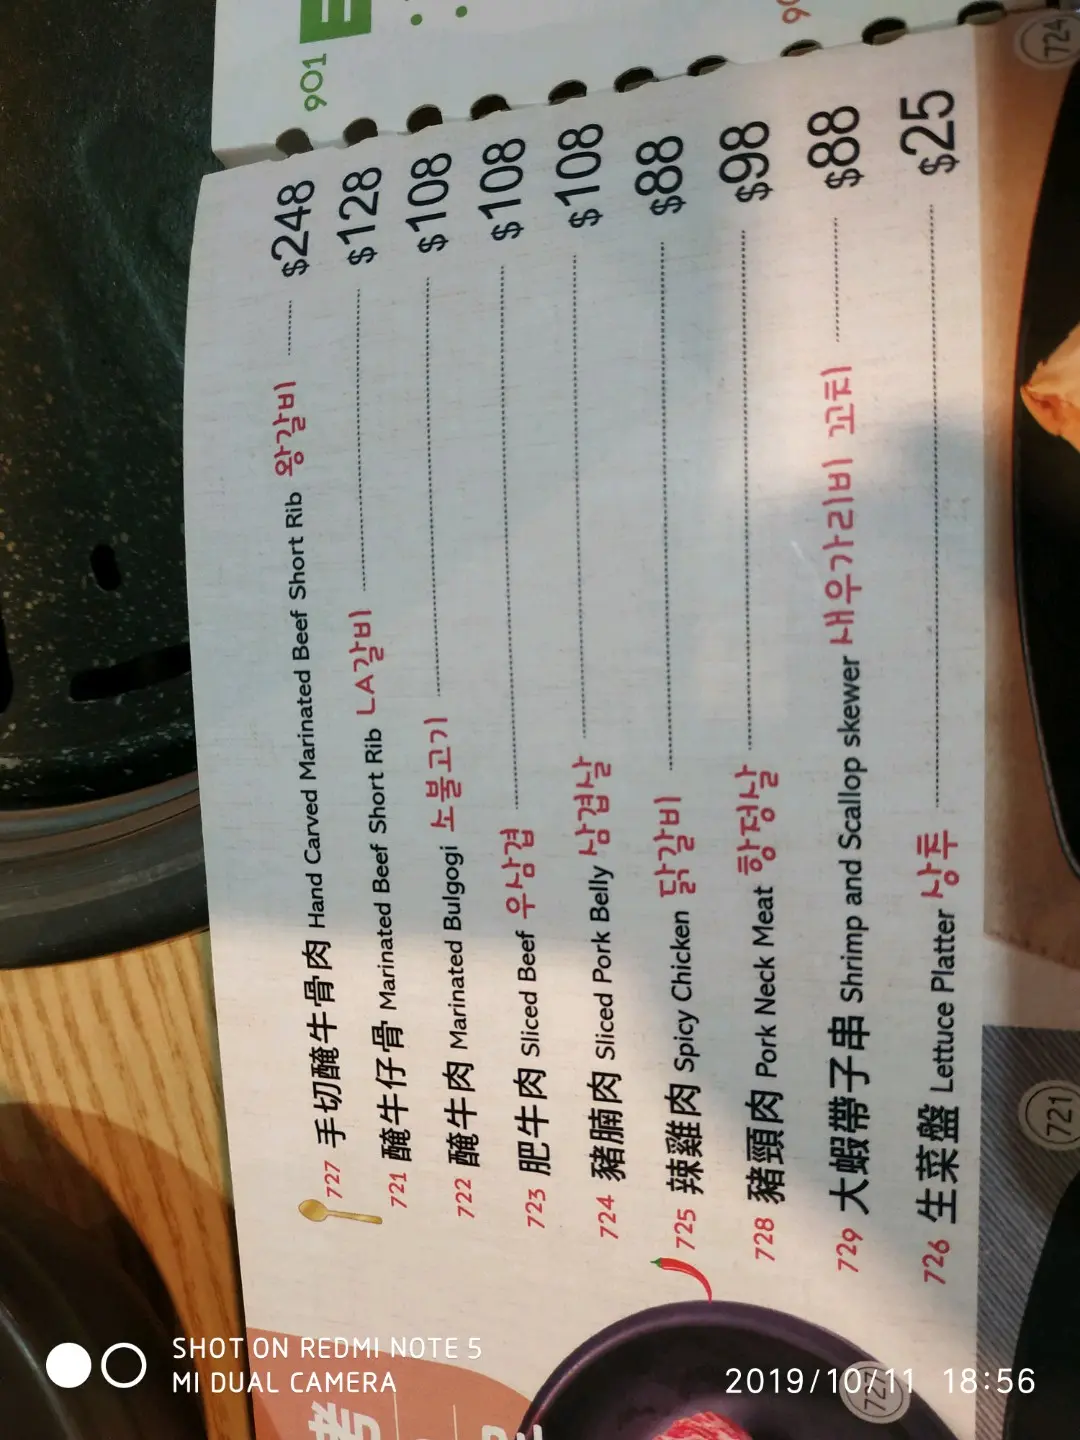 901
727 手切醃牛骨肉 Hand Carved Marinated Beef Short Rib 왕갈비 $248
721 醃牛仔骨 Marinated Beef Short Rib LA갈비 $128
722 醃牛肉 Marinated Bulgogi 소불고기 $108
723 肥牛肉 Sliced Beef 우삼겹 $108
724 豬腩肉 Sliced Pork Belly 삼겹살 $108
725 辣雞肉 Spicy Chicken 닭갈비 $88
728 豬頸肉 Pork Neck Meat 항정살 $98
729 大蝦帶子串 Shrimp and Scallop skewer 새우가리비 꼬치 $88
726 生菜盤 Lettuce Platter 상추 $25
724
721
SHOT ON REDMI NOTE 5
MI DUAL CAMERA
2019/10/11 18:56